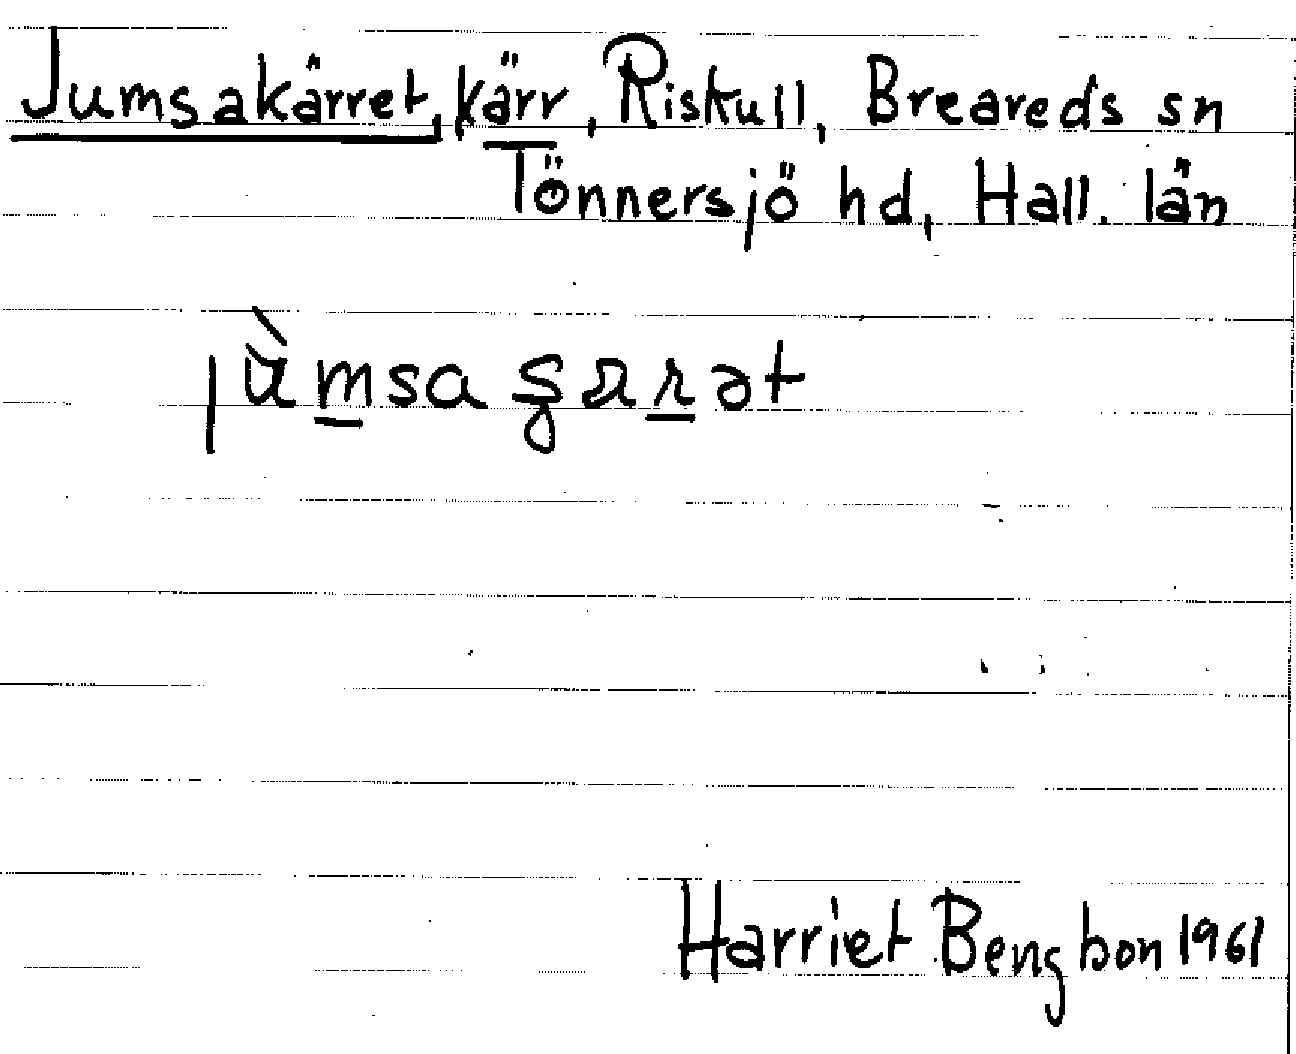 Jumsakärret, kärr, Riskull, Breareds sn
Tönnersjö hd, Hall. län
Harriet Bengtson 1961